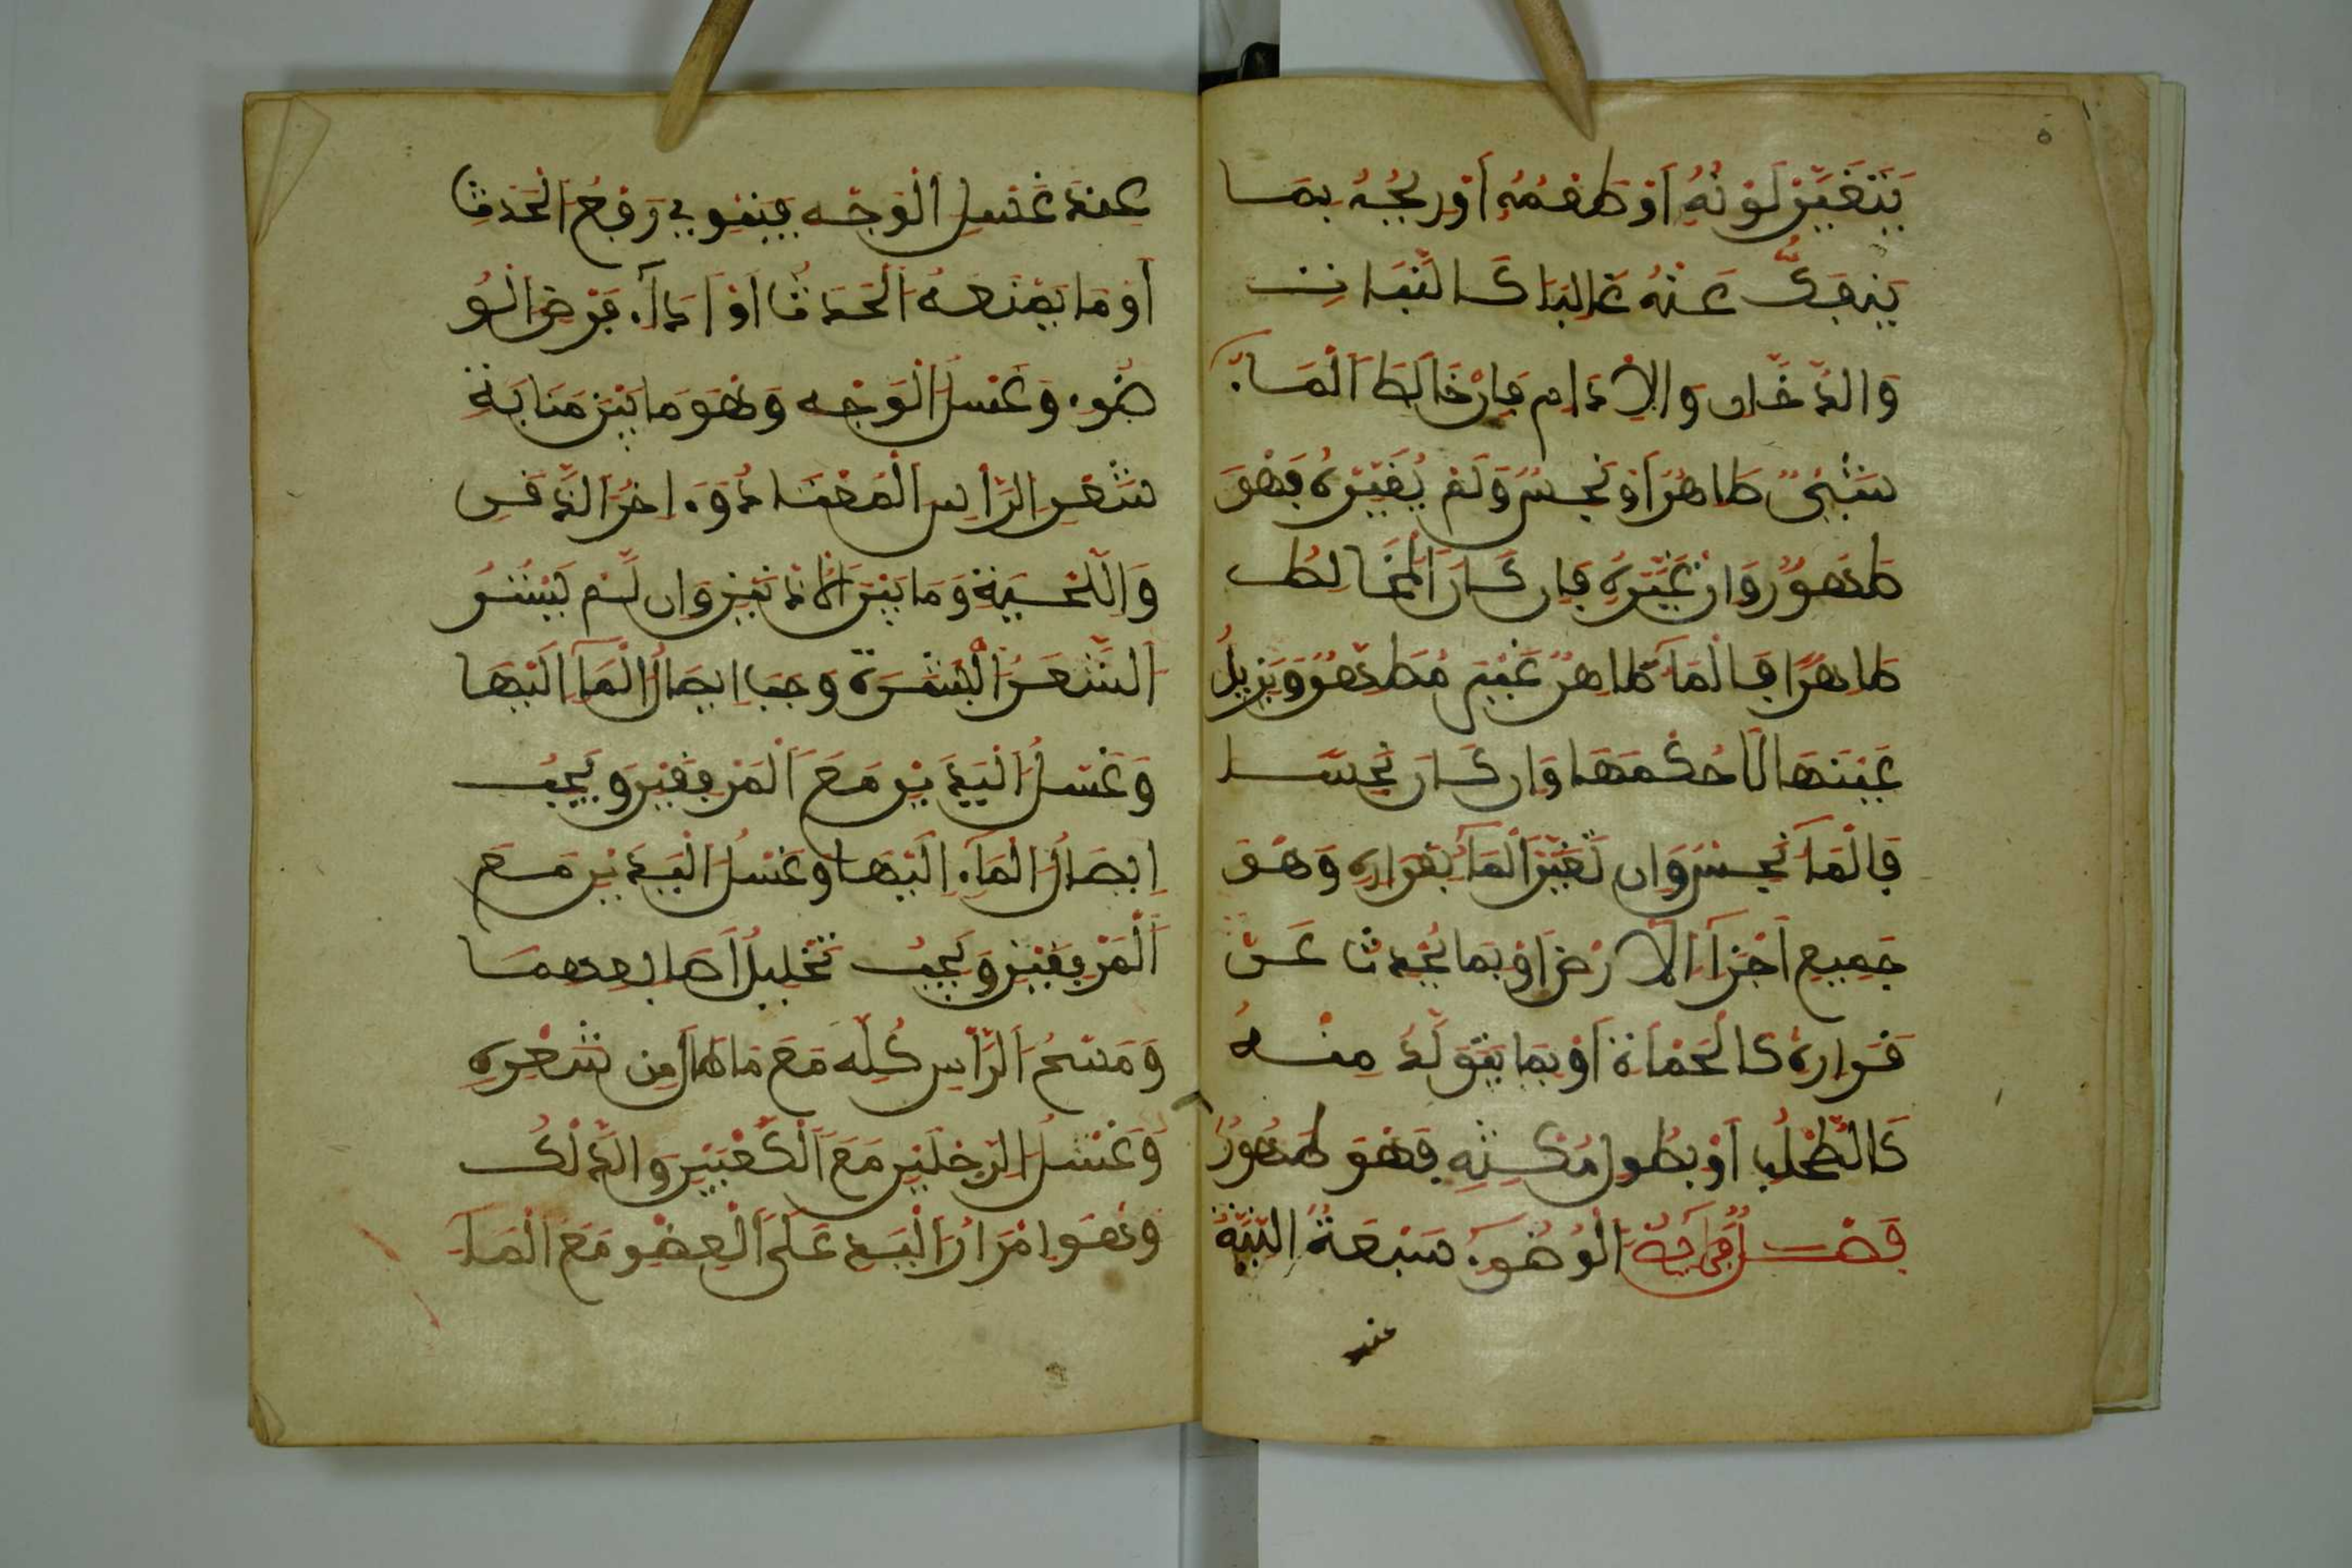 ٥
يَتَغَيَّرْ لَوْنُهُ أَوْ طَعْمُهُ أَوْ رِيحُهُ بِمَا
يَنْفَكُّ عَنْهُ غَالِبًا كَالنَّبَاتِ
وَالدُّخَانِ وَالإِدَامِ فَإِنْ خَالَطَ الْمَاءَ
شَيْءٌ طَاهِرٌ أَوْ نَجِسٌ وَلَمْ يُغَيِّرْهُ فَهُوَ
طَهُورٌ وَإِنْ غَيَّرَهُ فَإِنْ كَانَ الْمُخَالِطُ
طَاهِرًا فَالْمَاءُ طَاهِرٌ غَيْرَ مُطَهِّرٍ وَيُزِيلُ
عَيْنَهَا لَا حُكْمَهَا وَإِنْ كَانَ نَجِسًا
فَالْمَاءُ نَجِسٌ وَإِنْ تَغَيَّرَ الْمَاءُ بِقَرَارِهِ وَهُوَ
جَمِيعِ أَجْزَاءِ الْأَرْضِ أَوْ بِمَا يَحْدُثُ عَنْ
قَرَارِهِ كَالْحَمْأَةِ أَوْ بِمَا يَتَوَلَّدُ مِنْهُ
كَالطُّحْلُبِ أَوْ بِطُولِ مُكْثِهِ فَهُوَ طَهُورٌ
فَصْلٌ فَرَائِضُ الْوُضُوءِ سَبْعَةٌ النِّيَّةُ
عند
عِنْدَ غَسْلِ الْوَجْهِ فَيَنْوِي رَفْعَ الْحَدَثِ
أَوْ مَا يَمْنَعُهُ الْحَدَثُ أَوْ أَدَاءَ فَرْضِ الْوُ
ضُوءِ وَغَسْلُ الْوَجْهِ وَهُوَ مَا بَيْنَ مَنَابَةِ
شَعْرِ الرَّأْسِ الْمُعْتَادِ وَءَاخِرِ الذَّقَنِ
وَاللِّحْيَةِ وَمَا بَيْنَ الْأُذُنَيْنِ وَإِنْ لَمْ يَسْتُرِ
الشَّعَرُ الْبَشَرَةَ وَجَبَ إِيصَالُ الْمَاءِ إِلَيْهَا
وَغَسْلُ الْيَدَيْنِ مَعَ الْمَرْفِقَيْنِ وَيَجِبُ
إِيصَالُ الْمَاءِ إِلَيْهَا وَغَسْلُ الْيَدَيْنِ مَعَ
الْمَرْفِقَيْنِ وَيَجِبُ تَخْلِيلُ أَصَابِعِهِمَا
وَمَسْحُ الرَّأْسِ كُلِّهِ مَعَ مَا طَالَ مِنْ شَعْرِهِ
وَغَسْلُ الرِّجْلَيْنِ مَعَ الْكَعْبَيْنِ وَالدَّلْكُ
وَهُوَ إِمْرَارُ الْيَدِ عَلَى الْعُضْوِ مَعَ الْمَاءِ